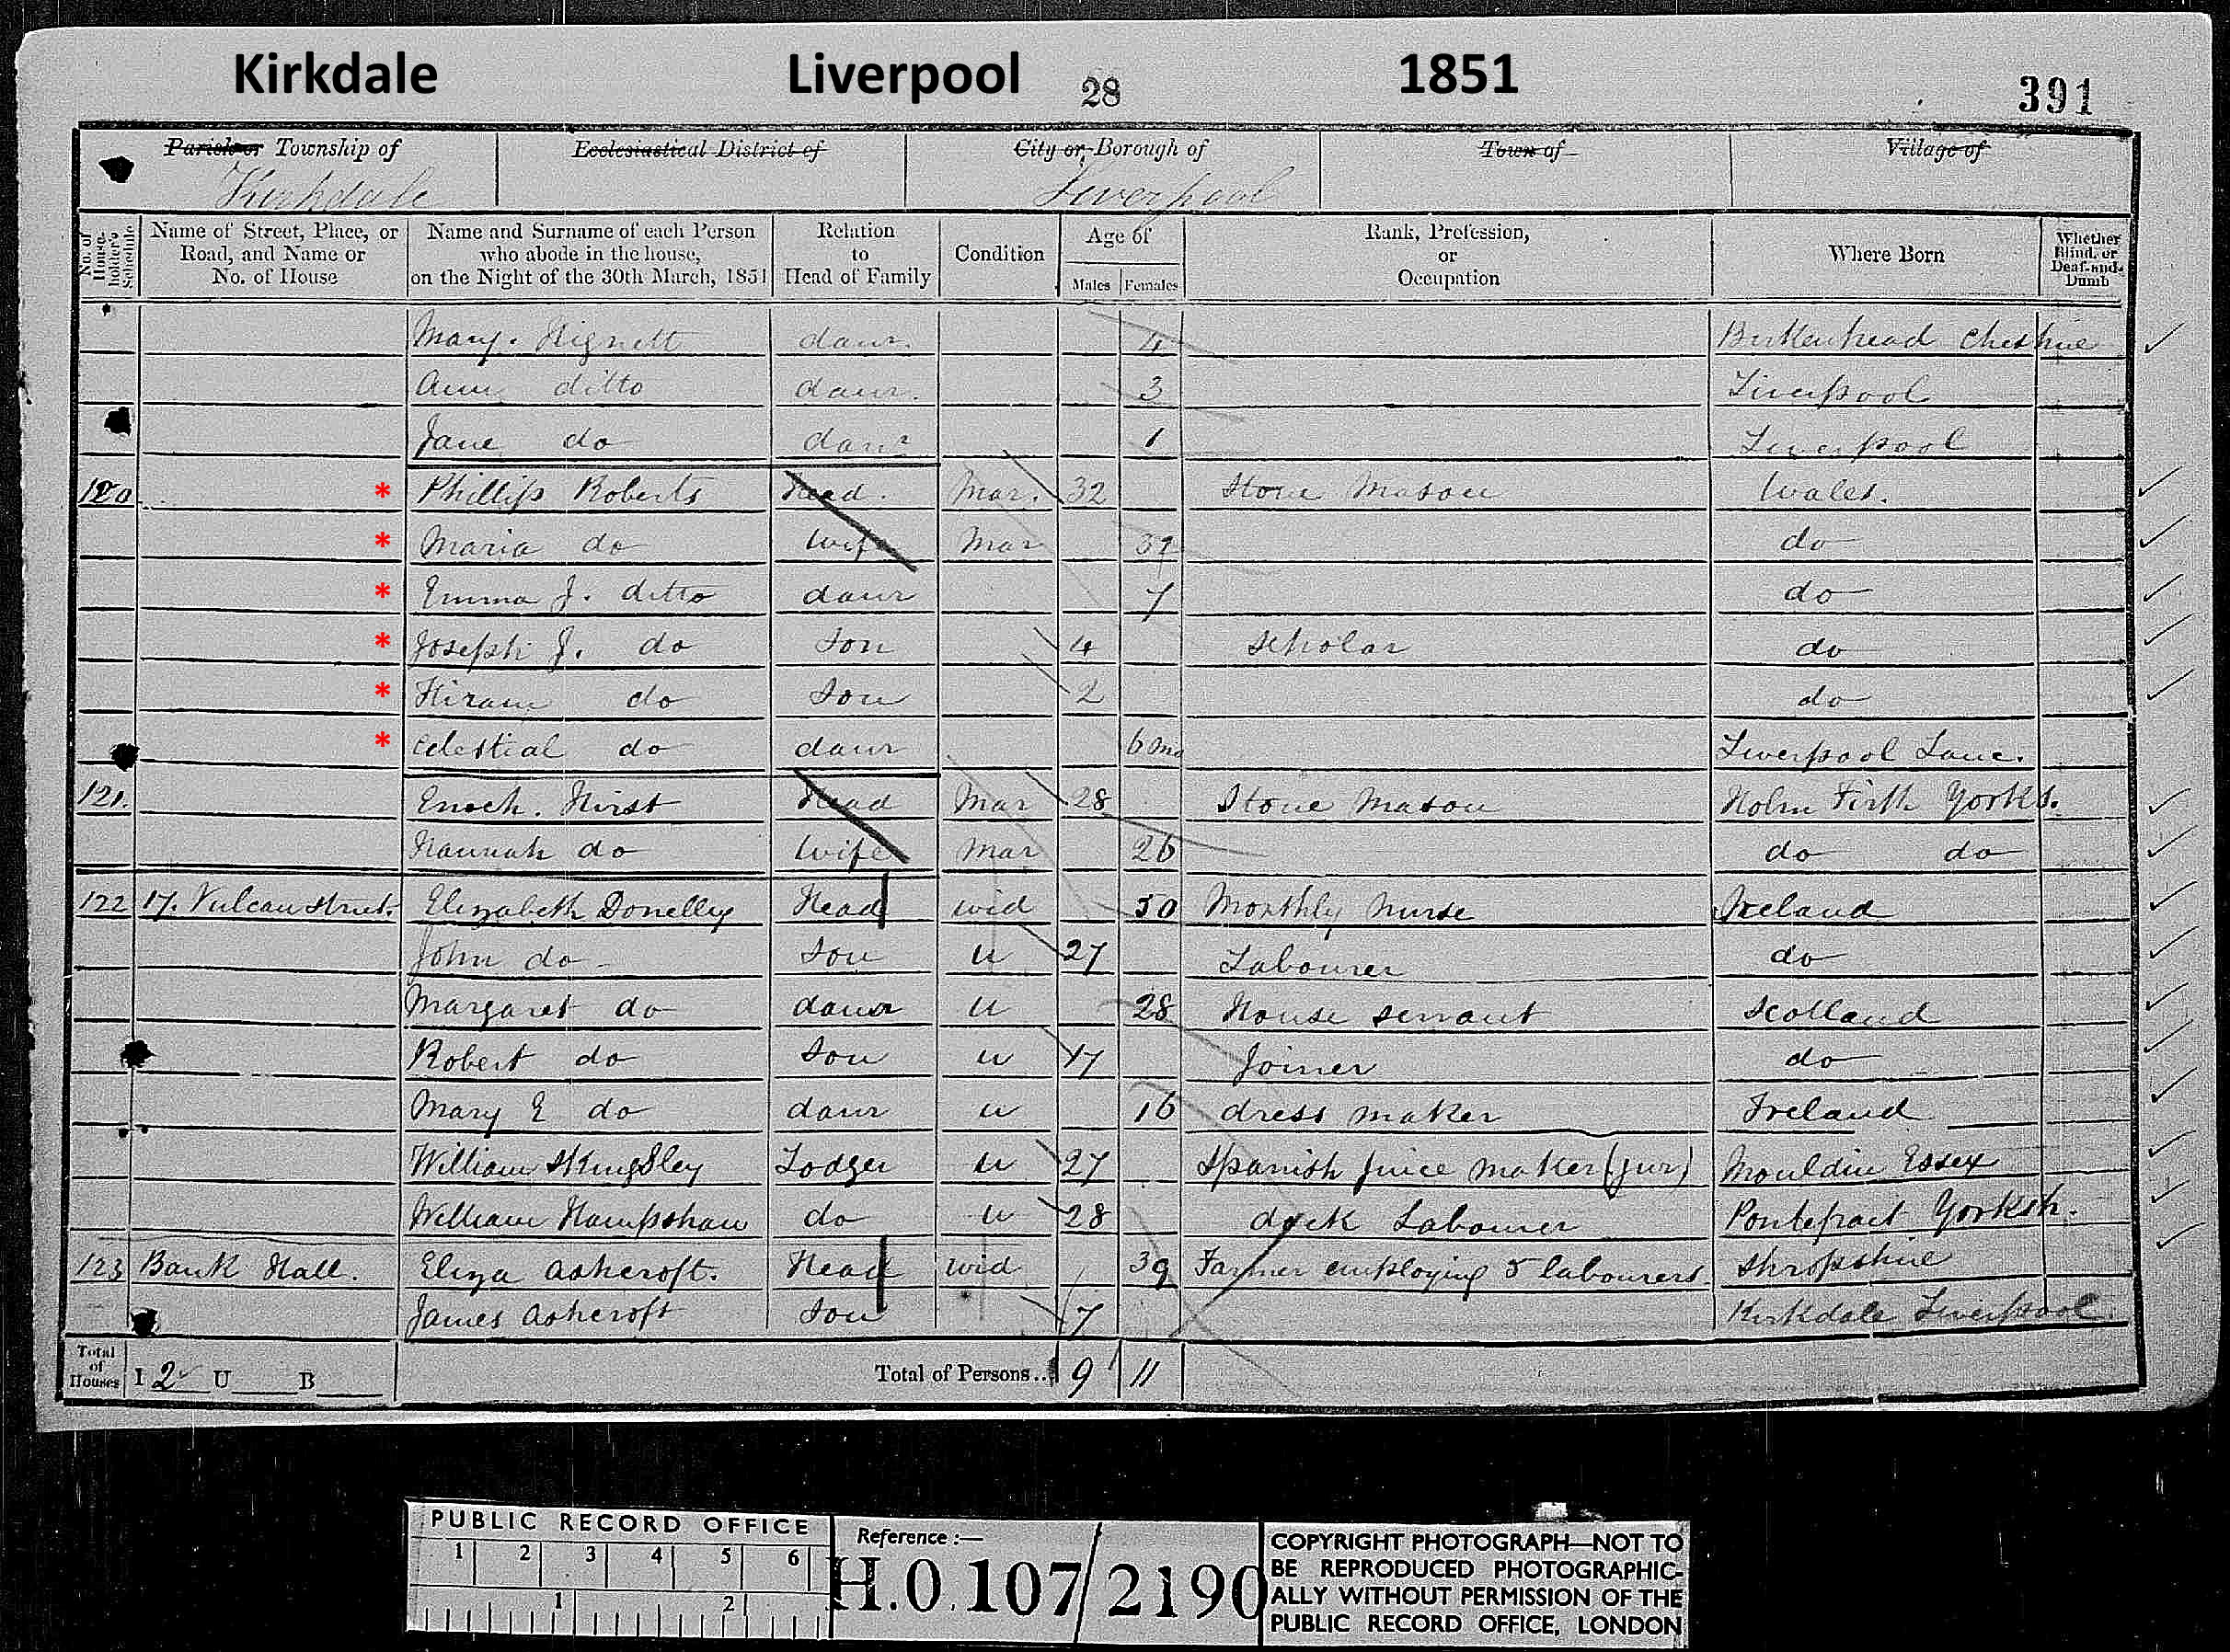 Kirkdale Liverpool 1851
28 391
Parish or Township of Ecclesiastical District of City or Borough of Town of Village of
Kirkdale Liverpool
No. of House-holder's Schedule Name of Street, Place, or Road, and Name or No. of House Name and Surname of each Person who abode in the house, on the Night of the 30th March, 1851 Relation to Head of Family Condition Age of Males Females Rank, Profession, or Occupation Where Born Whether Blind, or Deaf-and-Dumb
Mary. Hignett daur. 4 Birkenhead Cheshire
Ann ditto daur. 3 Liverpool
Jane do daur 1 Liverpool
120 * Phillip Roberts Head. Mar. 32 Stone Mason Wales.
* Maria do Wife Mar do
* Emma J. ditto daur 7 do
* Joseph J. do Son 4 scholar do
* Hiram do Son 2 do
* Celestial do daur 6 mo Liverpool Lanc.
121. Enoch. Hirst Head Mar 28 Stone Mason Holm Firth Yorks.
Hannah do Wife Mar 26 do do
122 17. Vulcan Street. Elizabeth Donelly Head wid 50 Monthly Nurse Ireland
John do Son u 27 Labourer do
Margaret do daur u 28 House servant Scotland
Robert do Son u 17 Joiner do
Mary E do daur u 16 dress maker Ireland
William Skingsley Lodger u 27 Spanish Juice maker (jur) Mouldin Essex
William Hampshaw do u 28 dock Labourer Pontefract Yorksh.
123 Bank Hall. Eliza Ashcroft. Head wid 39 Farmer employing 5 labourers Shropshire
James Ashcroft Son 7 Kirkdale Liverpool
Total of Houses I 2 U B Total of Persons.. 9 11
PUBLIC RECORD OFFICE
1 2 3 4 5 6
1 2
Reference :—
H.O. 107/2190
COPYRIGHT PHOTOGRAPH—NOT TO
BE REPRODUCED PHOTOGRAPHIC-
ALLY WITHOUT PERMISSION OF THE
PUBLIC RECORD OFFICE, LONDON